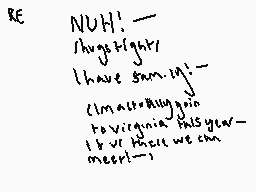 RE NUH! —
/hugs tight/
I have family! —
(Im actually goin
to virginia this year —
If ur there we can
meet! — )